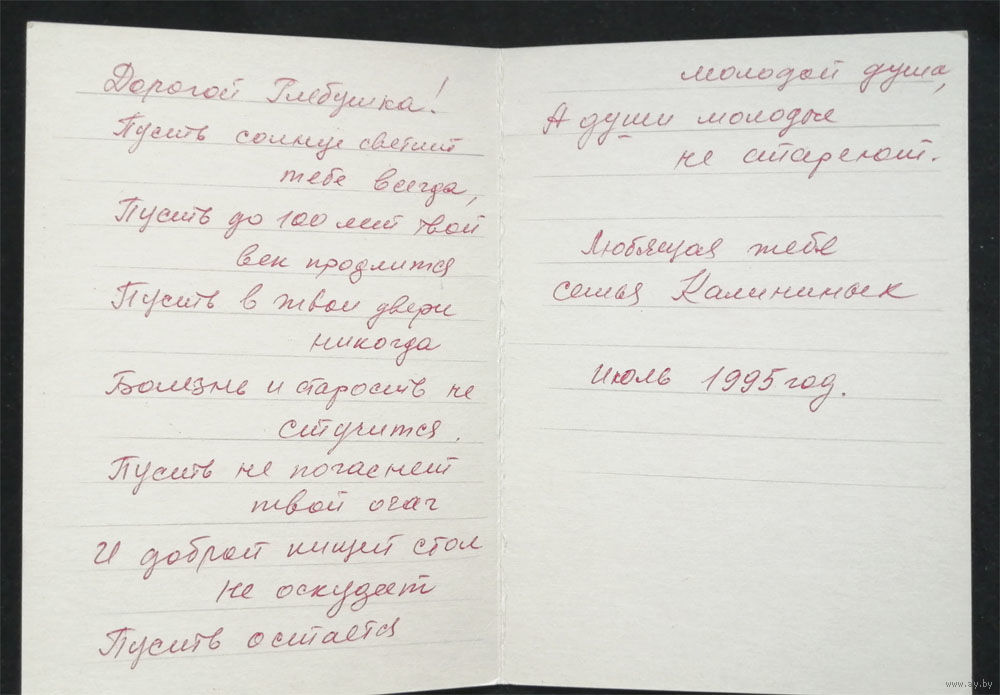 Дорогой Глебушка!
Пусть солнце светит
тебе всегда,
Пусть до 100 лет твой
век продлится
Пусть в твои двери
никогда
Болезнь и старость не
стучится.
Пусть не погаснет
твой очаг
И доброй пищей стол
не оскудеет
Пусть остается
молодой душа,
А души молодые
не стареют.
Любящая тебя
семья Калининых
Июль 1995 год.
www.ay.by